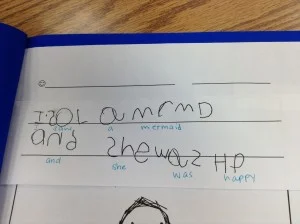 I sol a mrmD
saw a mermaid
and shewaz HP
and she was happy